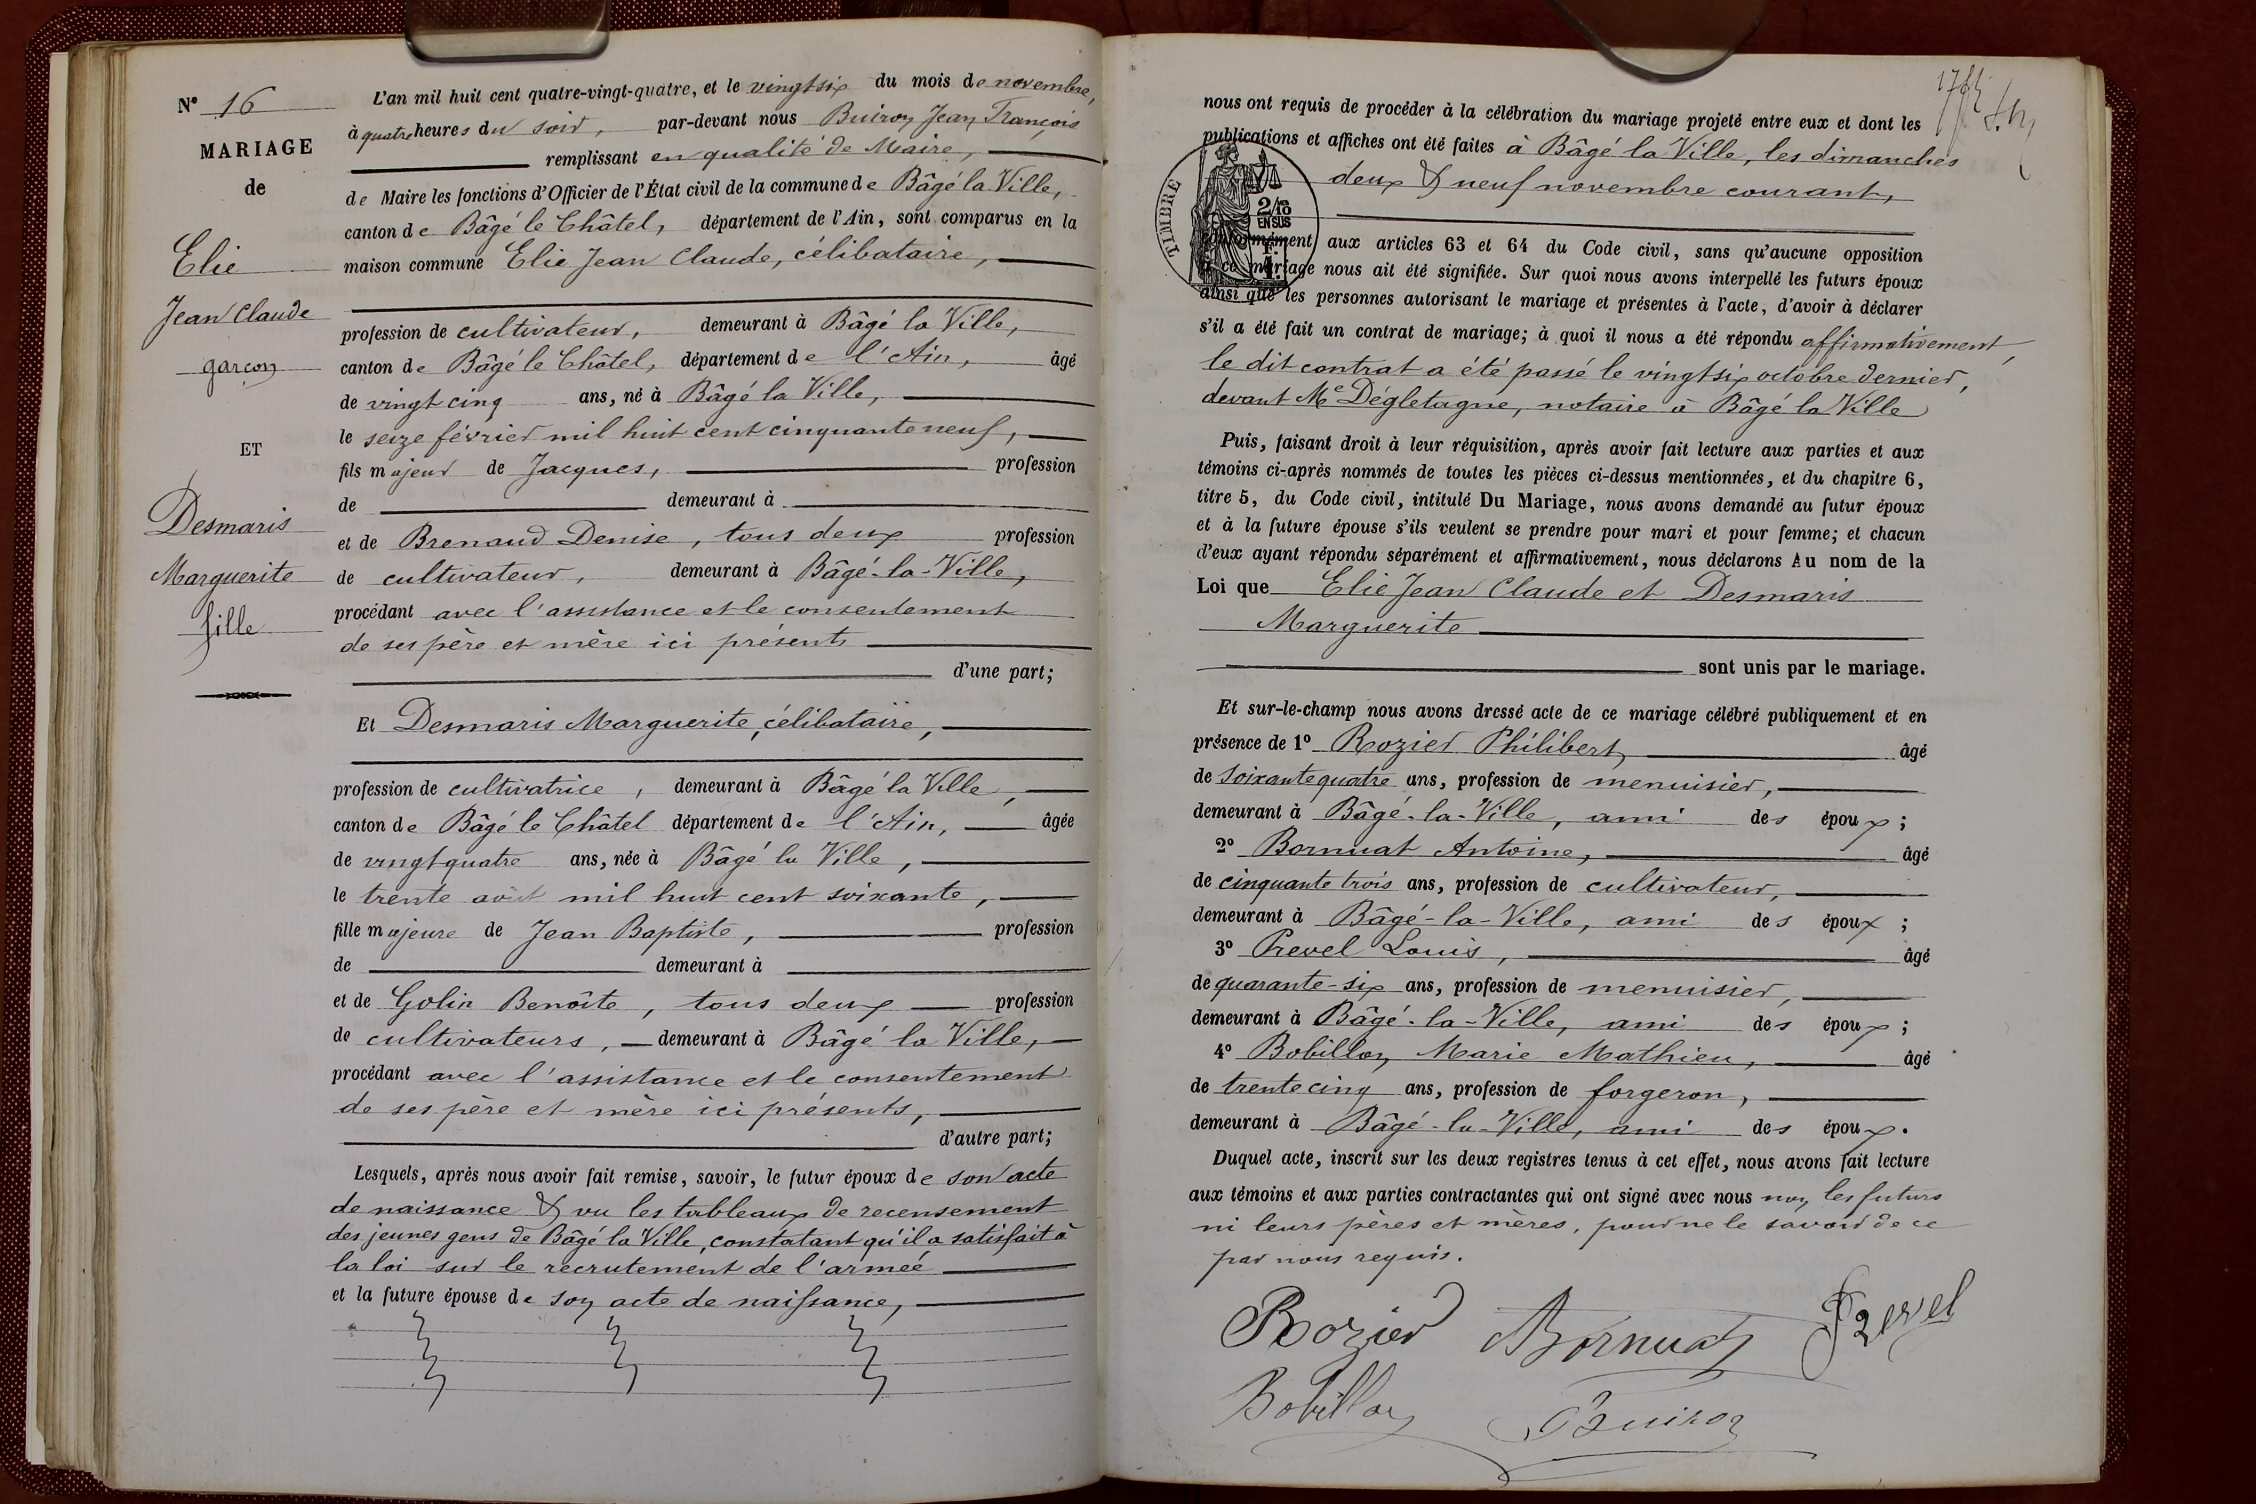 N° 16
MARIAGE
de
Elie
Jean Claude
garçon
ET
Desmaris
Marguerite
fille
L'an mil huit cent quatre-vingt-quatre, et le vingt six du mois de novembre,
à quatre heures du soir, par-devant nous Buiron Jean François
remplissant en qualité de Maire,
de Maire les fonctions d'Officier de l'État civil de la commune de Bâgé la Ville,
canton de Bâgé le Châtel, département de l'Ain, sont comparus en la
maison commune Elie Jean Claude, célibataire,
profession de cultivateur, demeurant à Bâgé la Ville,
canton de Bâgé le Châtel, département de l'Ain, âgé
de vingt cinq ans, né à Bâgé la Ville,
le seize février mil huit cent cinquante neuf,
fils majeur de Jacques, profession
de demeurant à
et de Brenaud Denise, tous deux profession
de cultivateur, demeurant à Bâgé-la-Ville,
procédant avec l'assistance et le consentement
de ses père et mère ici présents
d'une part;
Et Desmaris Marguerite, célibataire,
profession de cultivatrice, demeurant à Bâgé la Ville,
canton de Bâgé le Châtel département de l'Ain, âgée
de vingt quatre ans, née à Bâgé la Ville,
le trente août mil huit cent soixante,
fille majeure de Jean Baptiste, profession
de demeurant à
et de Golin Benoîte, tous deux profession
de cultivateurs, demeurant à Bâgé la Ville,
procédant avec l'assistance et le consentement
de ses père et mère ici présents,
d'autre part;
Lesquels, après nous avoir fait remise, savoir, le futur époux de son acte
de naissance & vu les tableaux de recensement
des jeunes gens de Bâgé la Ville, constatant qu'il a satisfait à
la loi sur le recrutement de l'armée
et la future épouse de son acte de naissance,
nous ont requis de procéder à la célébration du mariage projeté entre eux et dont les
publications et affiches ont été faites à Bâgé la Ville, les dimanches
deux & neuf novembre courant,
TIMBRE
2/10
EN SUS
conformément aux articles 63 et 64 du Code civil, sans qu'aucune opposition
à ce mariage nous ait été signifiée. Sur quoi nous avons interpellé les futurs époux
ainsi que les personnes autorisant le mariage et présentes à l'acte, d'avoir à déclarer
s'il a été fait un contrat de mariage; à quoi il nous a été répondu affirmativement,
le dit contrat a été passé le vingt six octobre dernier,
devant Me Dégletagne, notaire à Bâgé la Ville
Puis, faisant droit à leur réquisition, après avoir fait lecture aux parties et aux
témoins ci-après nommés de toutes les pièces ci-dessus mentionnées, et du chapitre 6,
titre 5, du Code civil, intitulé Du Mariage, nous avons demandé au futur époux
et à la future épouse s'ils veulent se prendre pour mari et pour femme; et chacun
d'eux ayant répondu séparément et affirmativement, nous déclarons Au nom de la
Loi que Elie Jean Claude et Desmaris
Marguerite
sont unis par le mariage.
Et sur-le-champ nous avons dressé acte de ce mariage célébré publiquement et en
présence de 1° Rozier Philibert, âgé
de soixante quatre ans, profession de menuisier,
demeurant à Bâgé-la-Ville, ami des époux;
2° Bornuat Antoine, âgé
de cinquante trois ans, profession de cultivateur,
demeurant à Bâgé-la-Ville, ami des époux;
3° Prevel Louis, âgé
de quarante-six ans, profession de menuisier,
demeurant à Bâgé-la-Ville, ami des époux;
4° Bobillon Marie Mathieu, âgé
de trente cinq ans, profession de forgeron,
demeurant à Bâgé-la-Ville, ami des époux.
Duquel acte, inscrit sur les deux registres tenus à cet effet, nous avons fait lecture
aux témoins et aux parties contractantes qui ont signé avec nous non les futurs
ni leurs pères et mères, pour ne le savoir de ce
par nous requis.
Rozier Bornuat Prevel
Bobillon Buiron